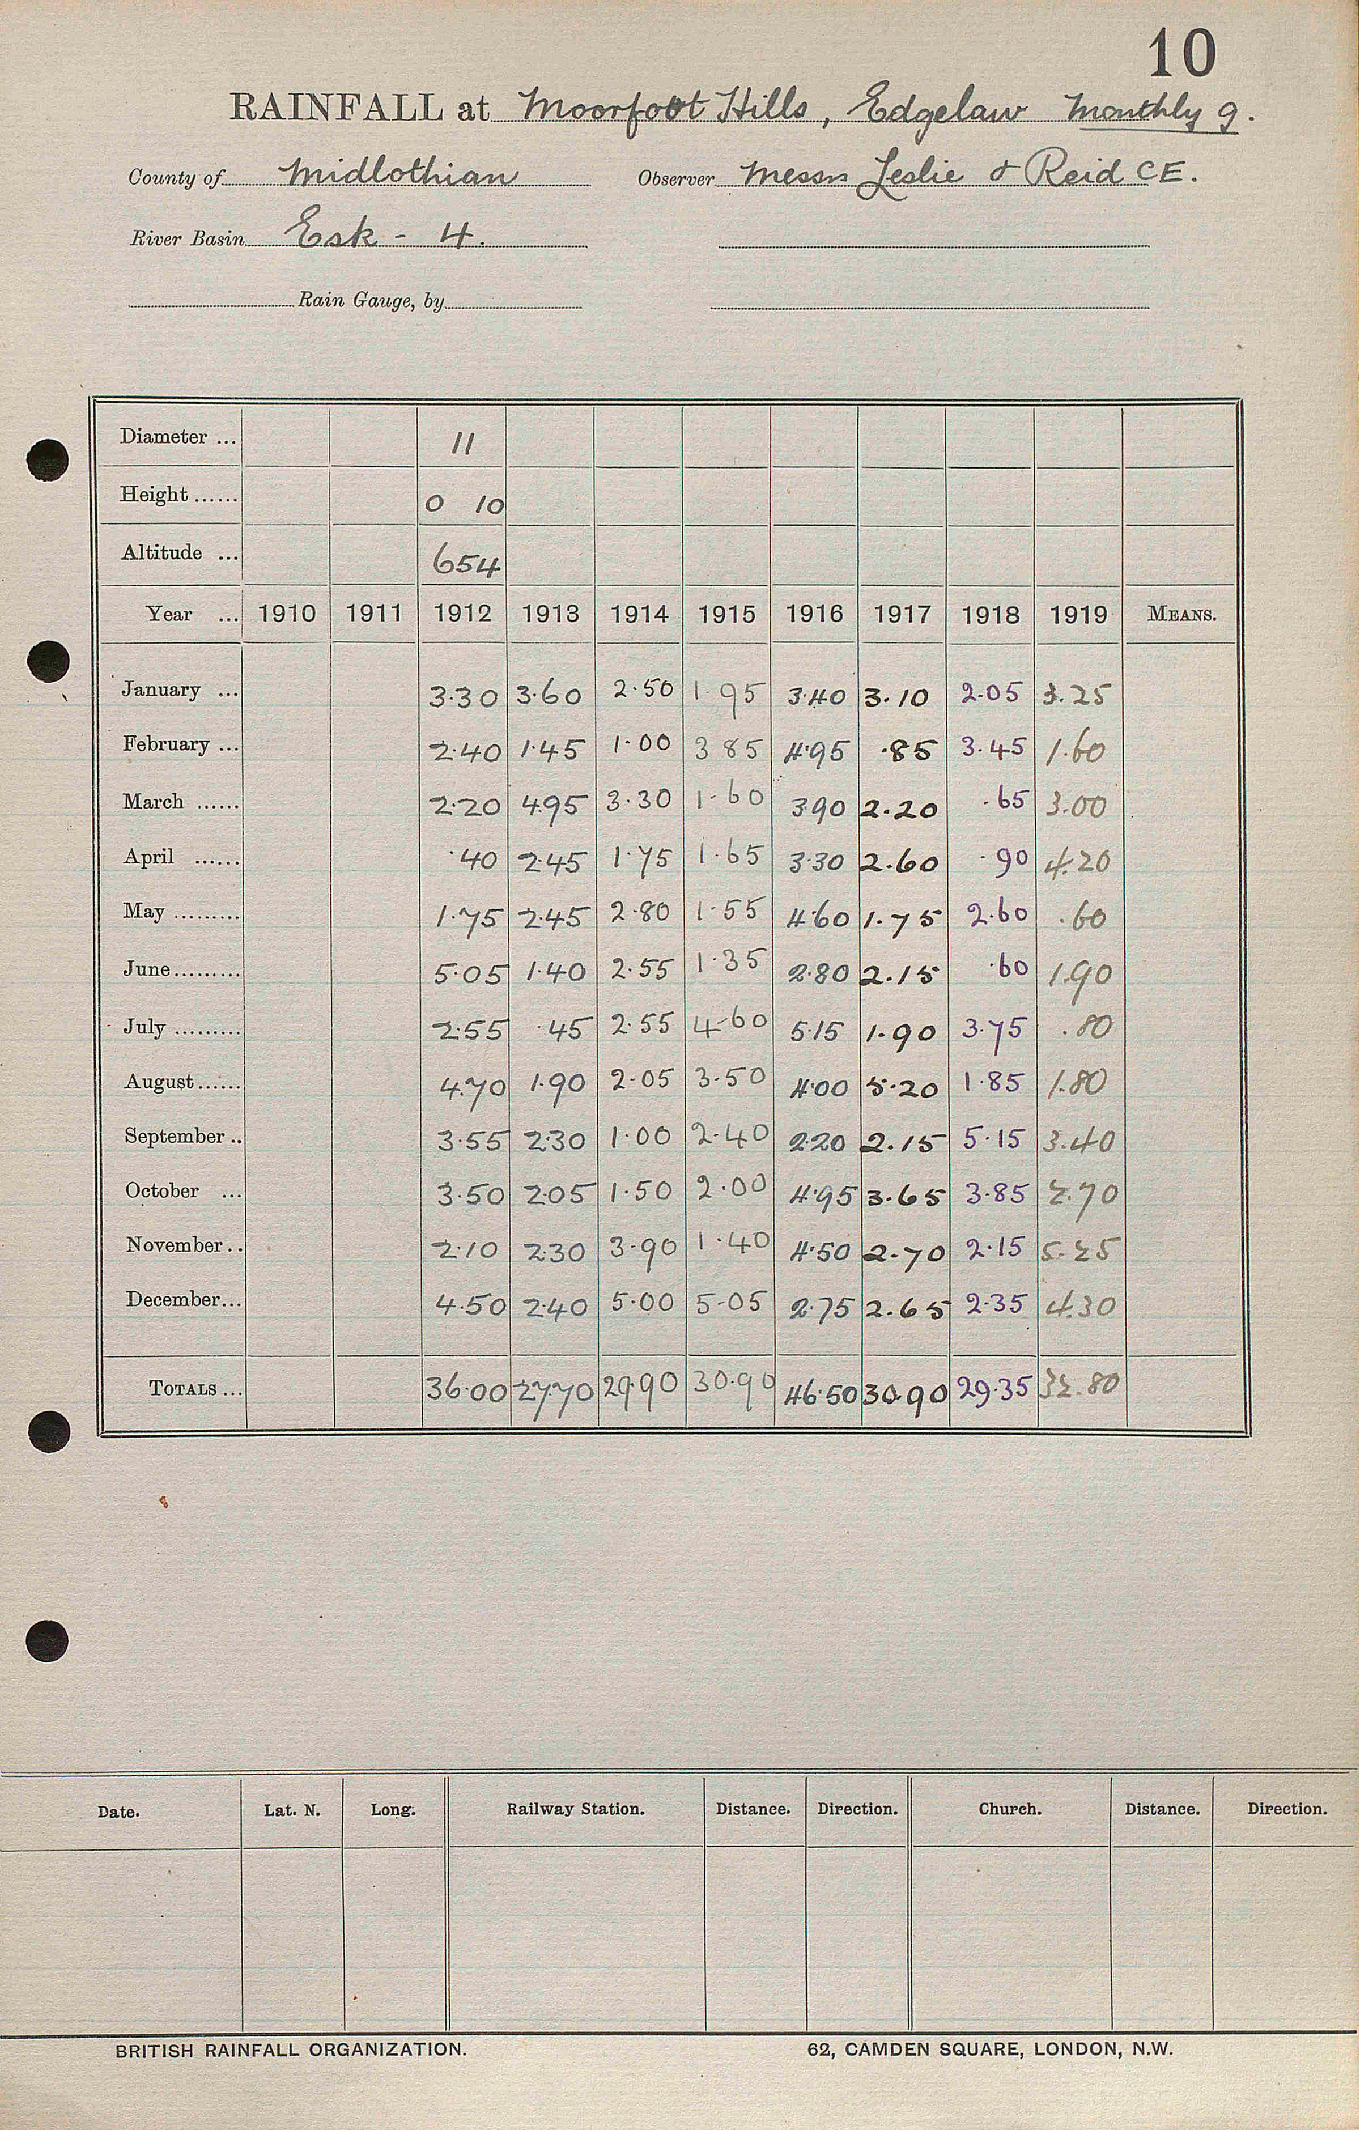 10
RAINFALL at Moorfoot Hills, Edgelaw Monthly g.
County of Midlothian Observer Messrs Leslie & Reid C.E.
River Basin Esk - 4.
Rain Gauge, by
Diameter ... 11
Height ...... 0 10
Altitude ... 654
Year ... 1910 1911 1912 1913 1914 1915 1916 1917 1918 1919 MEANS.
January ... 3.30 3.60 2.50 1.95 3.40 3.10 2.05 3.25
February ... 2.40 1.45 1.00 3.85 4.95 .85 3.45 1.60
March ...... 2.20 4.95 3.30 1.60 3.90 2.20 .65 3.00
April ...... .40 2.45 1.75 1.65 3.30 2.60 .90 4.20
May ......... 1.75 2.45 2.80 1.55 4.60 1.75 2.60 .60
June ......... 5.05 1.40 2.55 1.35 2.80 2.15 .60 1.90
July ......... 2.55 .45 2.55 4.60 5.15 1.90 3.75 .80
August ...... 4.70 1.90 2.05 3.50 4.00 5.20 1.85 1.80
September .. 3.55 2.30 1.00 2.40 2.20 2.15 5.15 3.40
October ... 3.50 2.05 1.50 2.00 4.95 3.65 3.85 2.70
November .. 2.10 2.30 3.90 1.40 4.50 2.70 2.15 5.25
December ... 4.50 2.40 5.00 5.05 2.75 2.65 2.35 4.30
TOTALS ... 36.00 27.70 29.90 30.90 46.50 30.90 29.35 32.80
Date. Lat. N. Long. Railway Station. Distance. Direction. Church. Distance. Direction.
BRITISH RAINFALL ORGANIZATION. 62, CAMDEN SQUARE, LONDON, N.W.